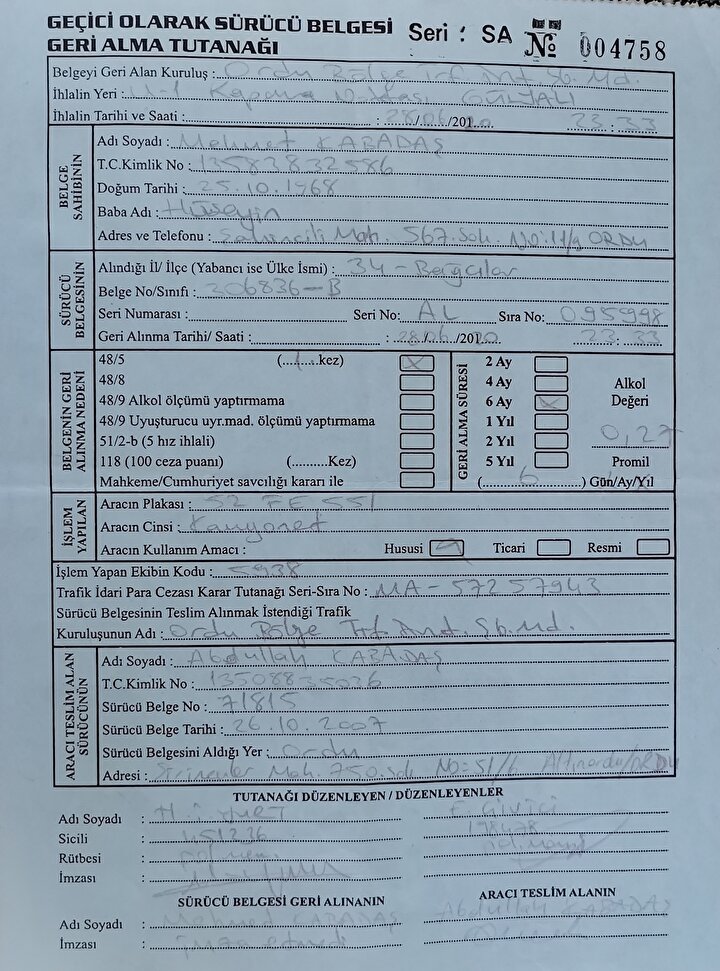 GEÇİCİ OLARAK SÜRÜCÜ BELGESİ
GERİ ALMA TUTANAĞI Seri : SA № 004758
Belgeyi Geri Alan Kuruluş : Ordu Bölge Trf. Dnt. Şb. Md.
İhlalin Yeri : Kapama Noktası GÜLYALI
İhlalin Tarihi ve Saati : 28/06/2020 23:33
BELGE SAHİBİNİN
Adı Soyadı : Mehmet KABADAŞ
T.C.Kimlik No : 13582832586
Doğum Tarihi : 25.10.1968
Baba Adı : Hüseyin
Adres ve Telefonu : Mah. 567. Sok. No: ORDU
SÜRÜCÜ BELGESİNİN
Alındığı İl/ İlçe (Yabancı ise Ülke İsmi) : 34 - Bağcılar
Belge No/Sınıfı : 306836-B
Seri Numarası : Seri No: AL Sıra No: 095998
Geri Alınma Tarihi/ Saati : 28/06/2020 23:33
BELGENİN GERİ ALINMA NEDENİ
48/5 (...1...kez) X
48/8
48/9 Alkol ölçümü yaptırmama
48/9 Uyuşturucu uyr.mad. ölçümü yaptırmama
51/2-b (5 hız ihlali)
118 (100 ceza puanı) (..........Kez)
Mahkeme/Cumhuriyet savcılığı kararı ile
GERİ ALMA SÜRESİ
2 Ay
4 Ay
6 Ay X
1 Yıl
2 Yıl
5 Yıl
(......6......) Gün/Ay/Yıl
Alkol
Değeri
0,27
Promil
İŞLEM YAPILAN
Aracın Plakası : 52 FE 551
Aracın Cinsi : Kamyonet
Aracın Kullanım Amacı : Hususi Ticari Resmi
İşlem Yapan Ekibin Kodu : 5938
Trafik İdari Para Cezası Karar Tutanağı Seri-Sıra No : MA - 57257943
Sürücü Belgesinin Teslim Alınmak İstendiği Trafik
Kuruluşunun Adı : Ordu Bölge Trf. Dnt. Şb. Md.
ARACI TESLİM ALAN SÜRÜCÜNÜN
Adı Soyadı : Abdullah KABADAŞ
T.C.Kimlik No : 13508835036
Sürücü Belge No : 71815
Sürücü Belge Tarihi : 26.10.2007
Sürücü Belgesini Aldığı Yer : Ordu
Adresi : Mah. 750. Sok. No: 51/6 Altınordu/ORDU
TUTANAĞI DÜZENLEYEN / DÜZENLEYENLER
Adı Soyadı :
Sicili :
Rütbesi :
İmzası :
SÜRÜCÜ BELGESİ GERİ ALINANIN ARACI TESLİM ALANIN
Adı Soyadı : Mehmet KABADAŞ Abdullah KABADAŞ
İmzası : imza etmedi